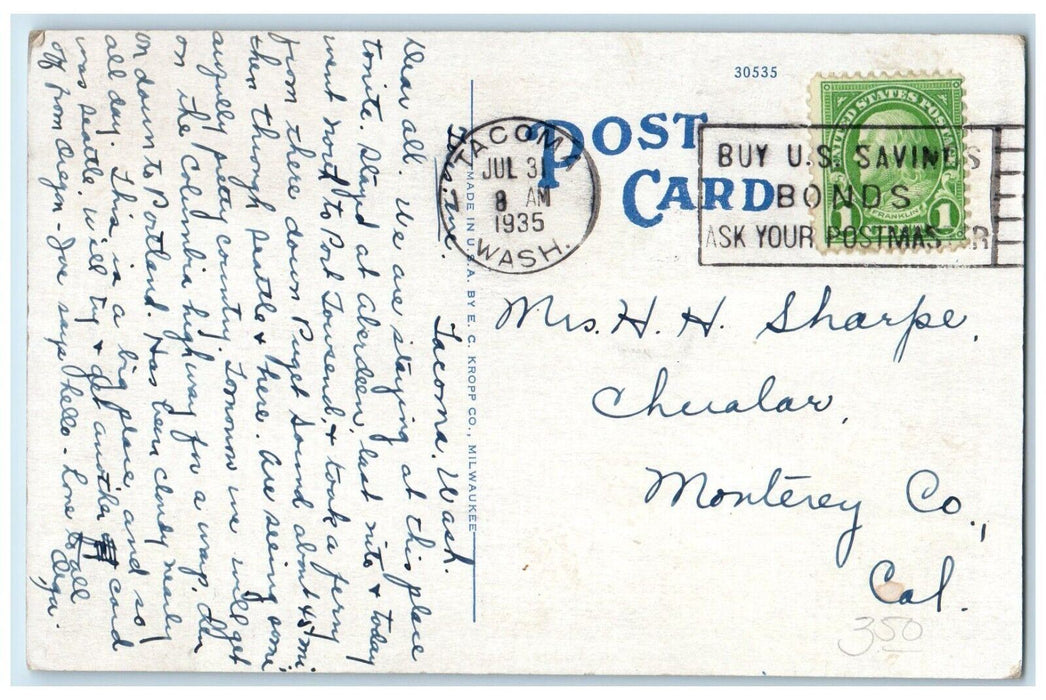 Tacoma, Wash.
Tues. Eve.
Dear all. We are staying at this place
tonite. Stayd at Aberdeen last nite & today
went north to Port Townsend, & took a ferry
from there down Puget Sound about 45 mi
then through Seattle & here. Are seeing some
awfully pretty country. Tomorrow we will get
on the Columbia highway for a ways, then
on down to Portland. Has been cloudy nearly
all day. This is a big place, and so
was Seattle. Will try & get another card
off from Oregon - Joe says hello - Love to all
30535
POST
CARD
MADE IN U.S.A. BY E. C. KROPP CO., MILWAUKEE
TACOMA
JUL 31
8 AM
1935
WASH.
BUY U.S. SAVINGS
BONDS
ASK YOUR POSTMASTER
UNITED STATES POSTAGE
1 FRANKLIN 1
Mrs. H. H. Sharpe,
Chualar,
Monterey Co.,
Cal.
3.50